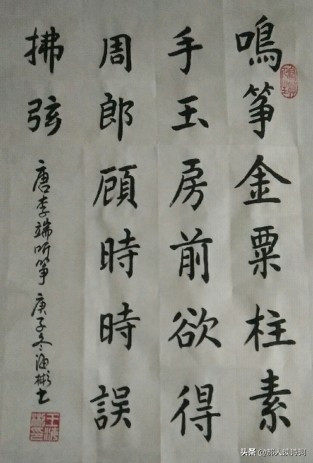 鳴筝金粟柱素
手玉房前欲得
周郎顧時時誤
拂弦
唐李端听筝庚子冬海彬书
头条